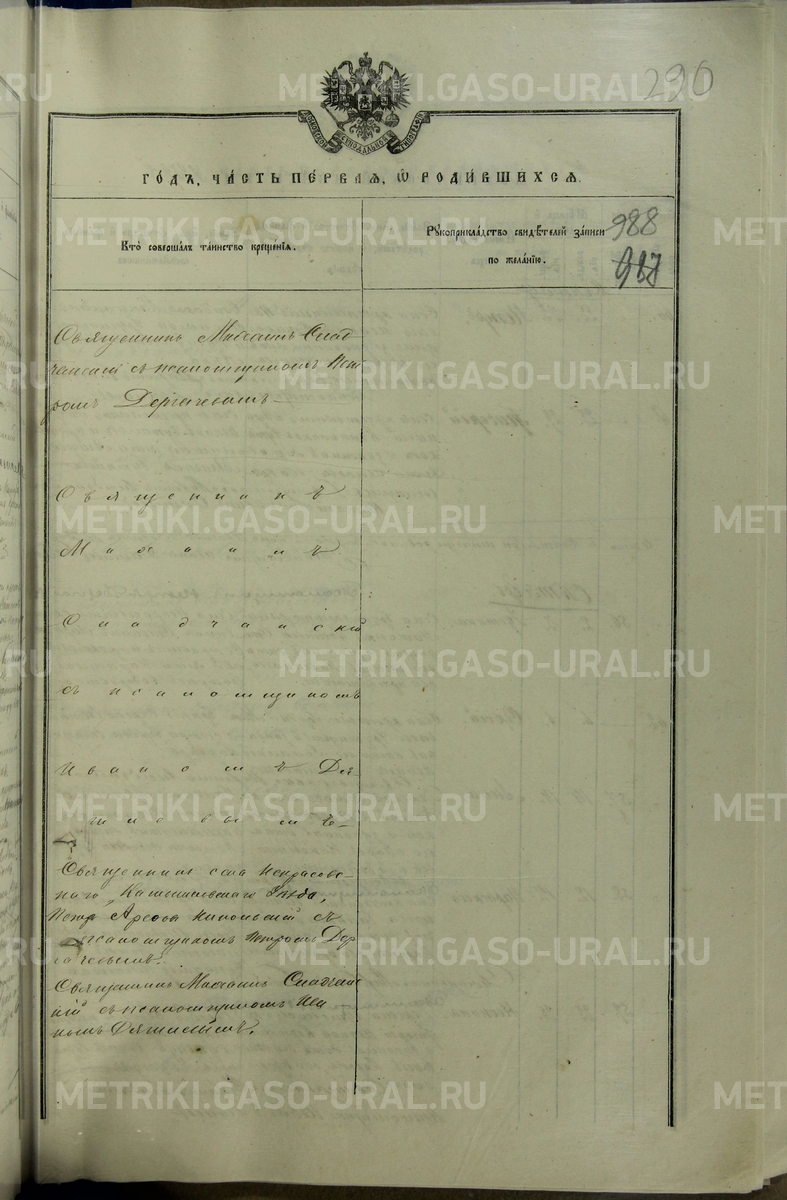 290
МОСКОВСКОЙ СѴНОДАЛЬНОЙ ТИПОГРАФІИ
ГО́ДЪ, ЧА́СТЬ ПЕ́РВАЯ, Ѡ҆ РОДИ́ВШИХСЯ.
Кто̀ соверша́лъ та́инство креще́нїя.
Рꙋкоприкла́дство свидѣ́телей за́писи
по жела́нїю.
988
987
Священникъ Михаилъ Слад
чанскій съ псаломщикомъ Пет
ромъ Дергачевымъ
Священникъ
Михаилъ
Сладчанскій
съ псаломщикомъ
Иваномъ
Священникъ села Некрасов
скаго, Камышловскаго уѣзда,
Петръ съ
псаломщикомъ Петромъ Дер
гачевымъ.
Священникъ Михаилъ Сладчан
скій съ псаломщикомъ Ива
номъ
METRIKI.GASO-URAL.RU